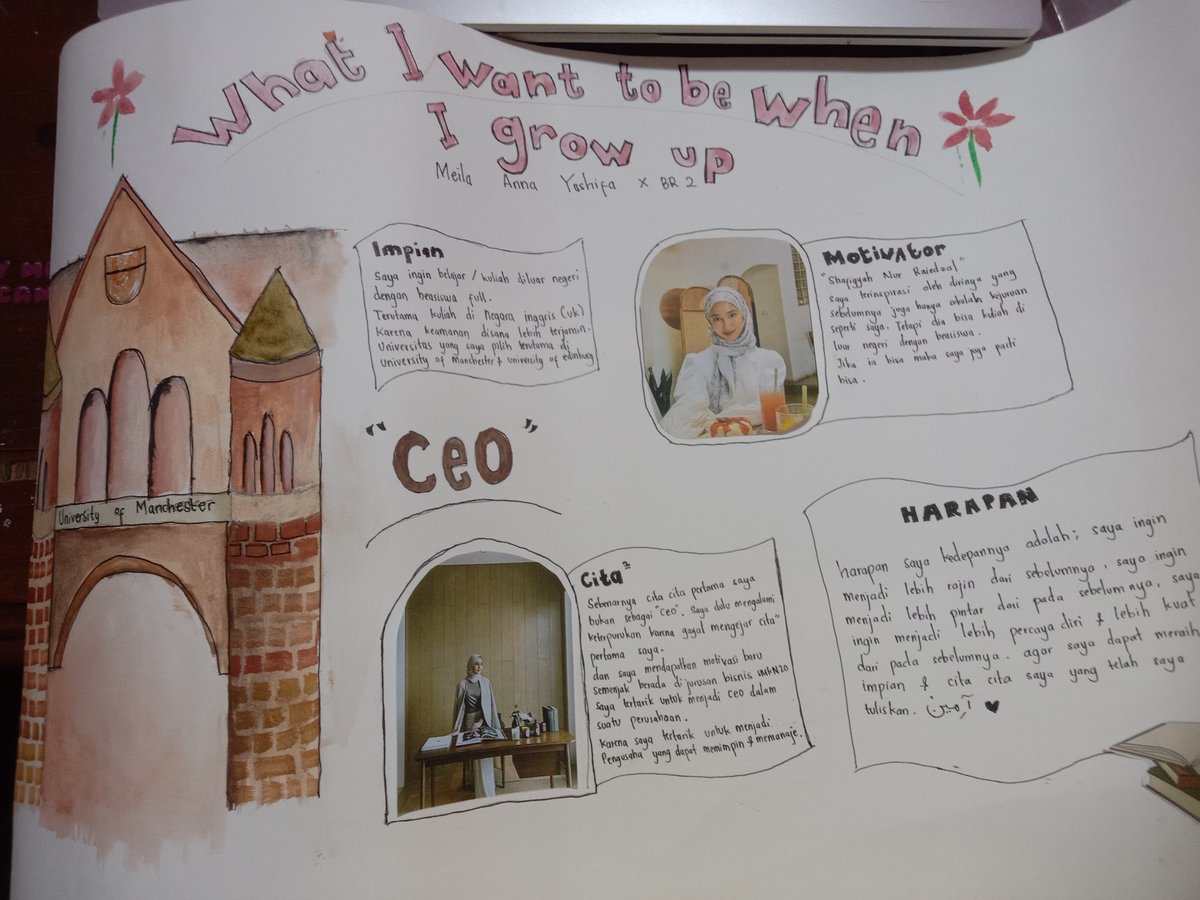 What I want to be when
I grow up
Meila Anna Yashifa X BR 2
Impian
Saya ingin belajar / kuliah diluar negeri
dengan beasiswa full.
Terutama kuliah di Negara inggris (UK)
Karena keamanan disana lebih terjamin.
Universitas yang saya pilih terutama di
University of Manchester & university of edinburg
Motivator
"Shafiyyah Nur Raiedzal"
saya terinspirasi oleh dirinya yang
sebelumnya juga hanya sekolah kejuruan
seperti saya. Tetapi dia bisa kuliah di
luar negeri dengan beasiswa.
Jika ia bisa maka saya juga pasti
bisa.
"CeO"
University of Manchester
Cita²
Sebenarnya cita cita pertama saya
bukan sebagai "CeO". Saya dulu mengalami
keterpurukan karna gagal mengejar cita"
pertama saya.
dan saya mendapatkan motivasi baru
Semenjak berada di jurusan bisnis SMKN20
Saya tertarik untuk menjadi CEO dalam
suatu perusahaan.
Karena saya tertarik untuk menjadi
Pengusaha yang dapat memimpin & memanaje.
HARAPAN
harapan saya kedepannya adalah; saya ingin
menjadi lebih rajin dari sebelumnya, saya ingin
menjadi lebih pintar dari pada sebelumnya, saya
ingin menjadi lebih percaya diri & lebih kuat
dari pada sebelumnya. agar saya dapat meraih
impian & cita cita saya yang telah saya
tuliskan. آمين ♥